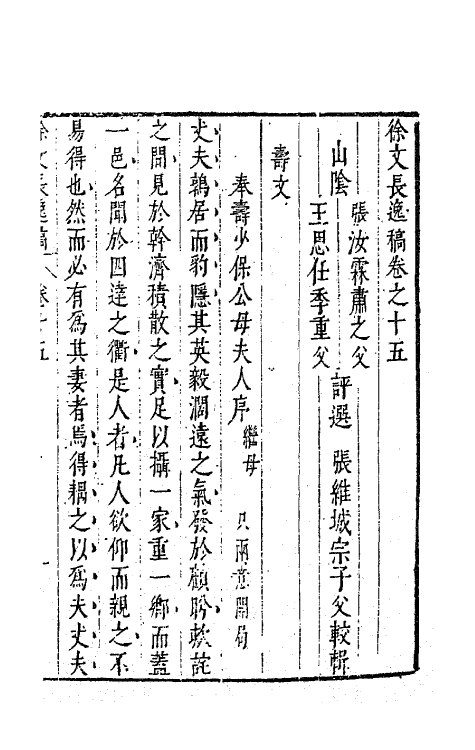 徐文長逸稿卷之十五
山陰 張汝霖肅之父
王思任季重父
評選 張維城宗子父較輯
壽文
奉壽少保公母夫人序 繼母 只兩意開局
丈夫鶉居而豹隱其英毅濶遠之氣發於顧盻欬詫
之間見於幹濟積散之實足以攝一家重一鄉而蓋
一邑名聞於四達之衢是人者凡人欲仰而親之不
易得也然而必有爲其妻者焉得耦之以爲夫丈夫
徐文長逸稿 卷十五 一